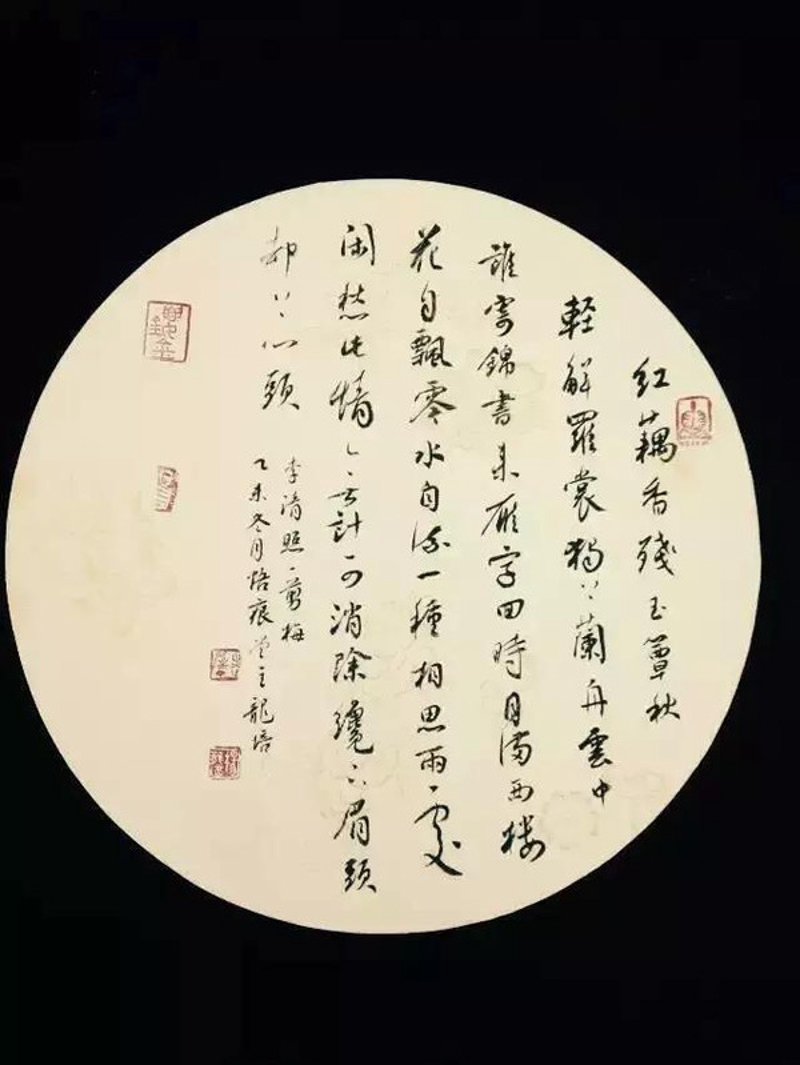 紅藕香殘玉簟秋
輕解羅裳獨上蘭舟雲中
誰寄錦書来雁字回時月满西楼
花自飄零水自流一種相思兩處
闲愁此情无計可消除纔下眉頭
却上心頭
李清照一剪梅
乙未冬月悟痕堂主龍培